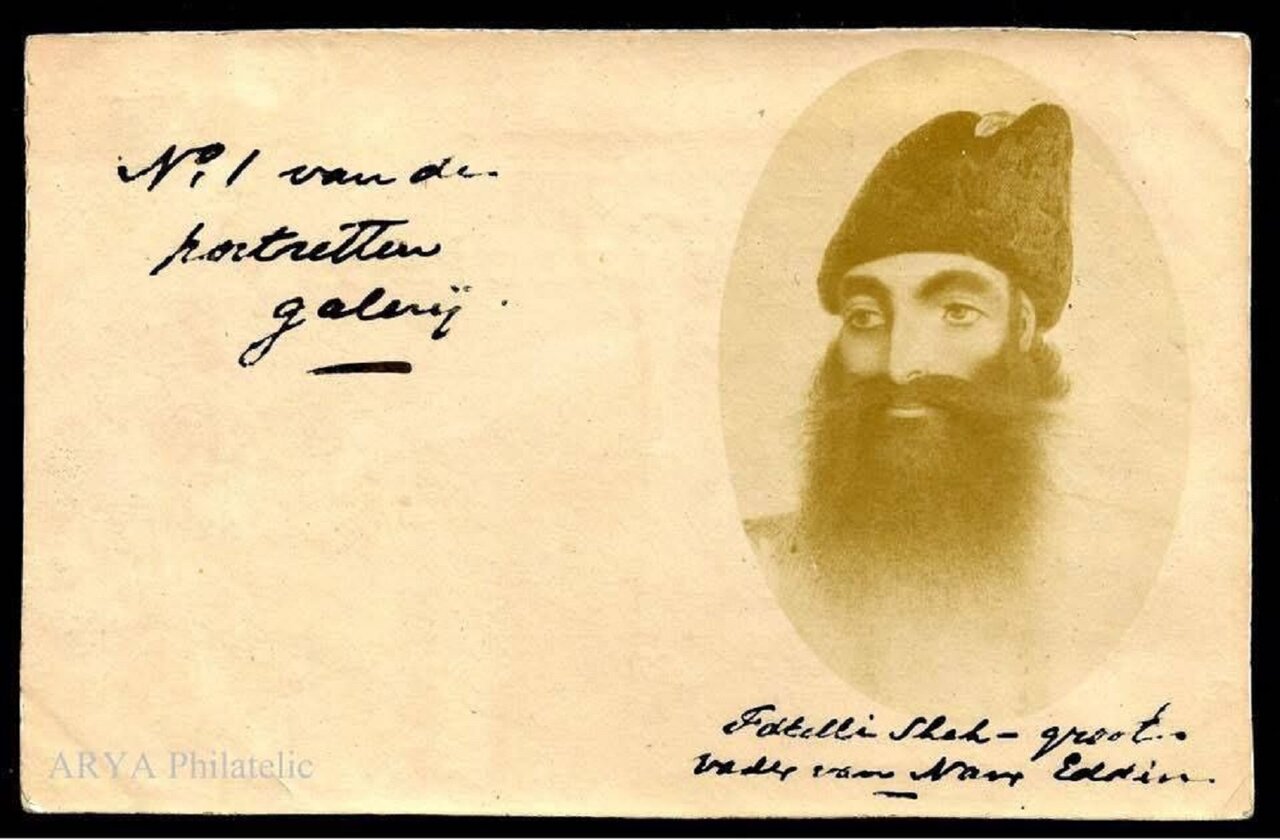 No. 1 van de
portretten
galerij.
Fatelli Shah - groot-
vader van Nasr Eddin.
ARYA Philatelic